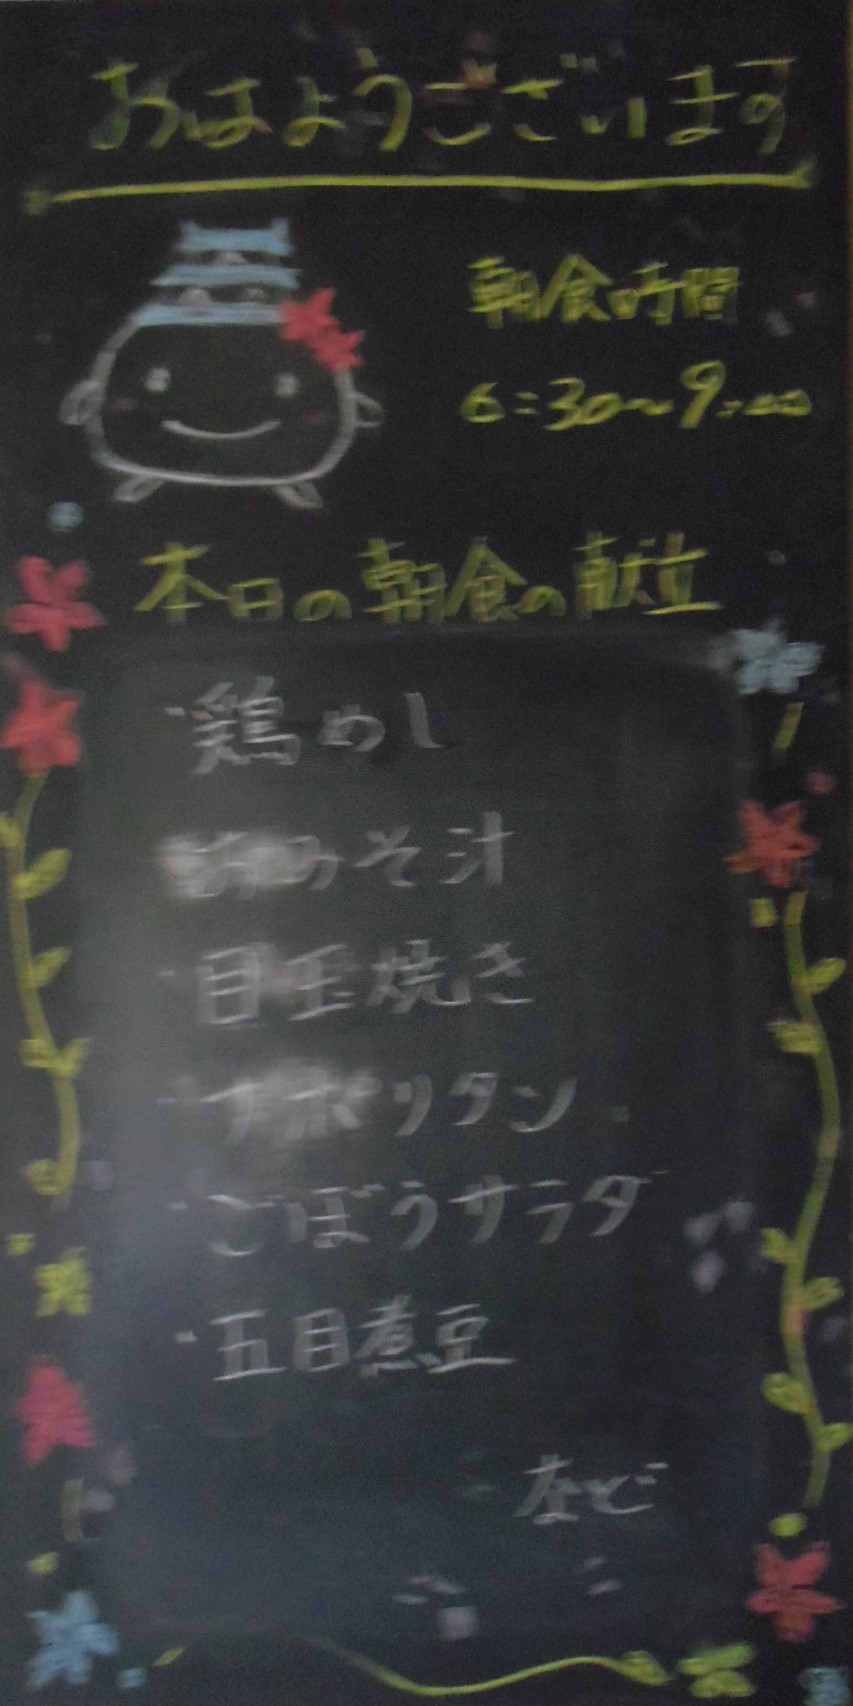 おはようございます
朝食時間
6:30~9:00
本日の朝食の献立
・鶏めし
みそ汁
・目玉焼き
・ナポリタン
・ごぼうサラダ
・五目煮豆
など